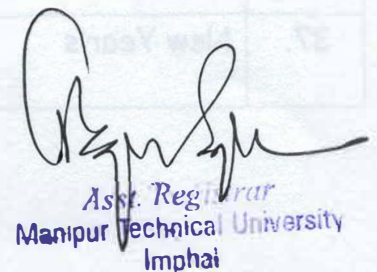 37. New Year's
Asst. Registrar
Manipur Technical University
Imphal